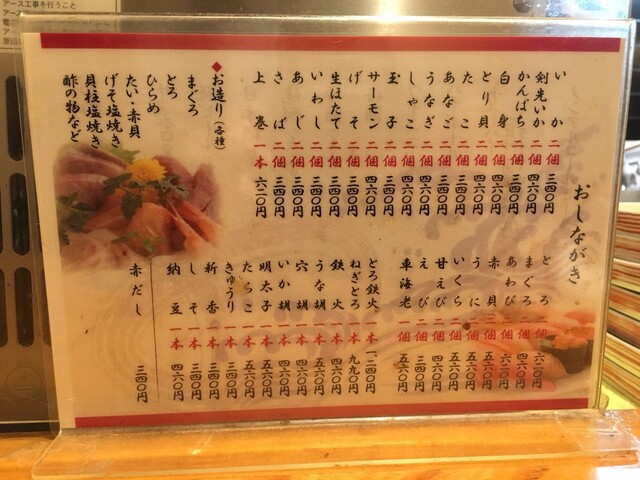 アース工事を行うこと
おしながき
いか 二個 三四〇円
剣先いか 二個 四六〇円
かんぱち 二個 三四〇円
白身 二個 四六〇円
とり貝 二個 四六〇円
たこ 二個 三四〇円
あなご 二個 三四〇円
うなぎ 二個 四六〇円
しゃこ 二個 四六〇円
玉子 二個 三四〇円
サーモン 二個 四六〇円
げそ 二個 三四〇円
生ほたて 二個 三四〇円
いわし 二個 三四〇円
あじ 二個 三四〇円
さば 二個 三四〇円
上巻 一本 六二〇円
◆お造り(各種)
まぐろ
とろ
ひらめ
たい・赤貝
げそ塩焼き
貝柱塩焼き
酢の物など
とろ 二個 六二〇円
まぐろ 二個 四六〇円
あわび 二個 六二〇円
赤貝 二個 五六〇円
うに 二個 五六〇円
いくら 二個 五六〇円
甘えび 二個 四六〇円
えび 二個 三四〇円
車海老 二個 五六〇円
とろ鉄火 一本 一、二四〇円
ねぎとろ 一本 九九〇円
鉄火 一本 四六〇円
うな胡 一本 五六〇円
穴胡 一本 四六〇円
いか胡 一本 四六〇円
明太子 一本 五六〇円
たらこ 一本 五六〇円
きゅうり 一本 三四〇円
新香 一本 三四〇円
しそ 一本 三四〇円
納豆 一本 四六〇円
赤だし 三四〇円